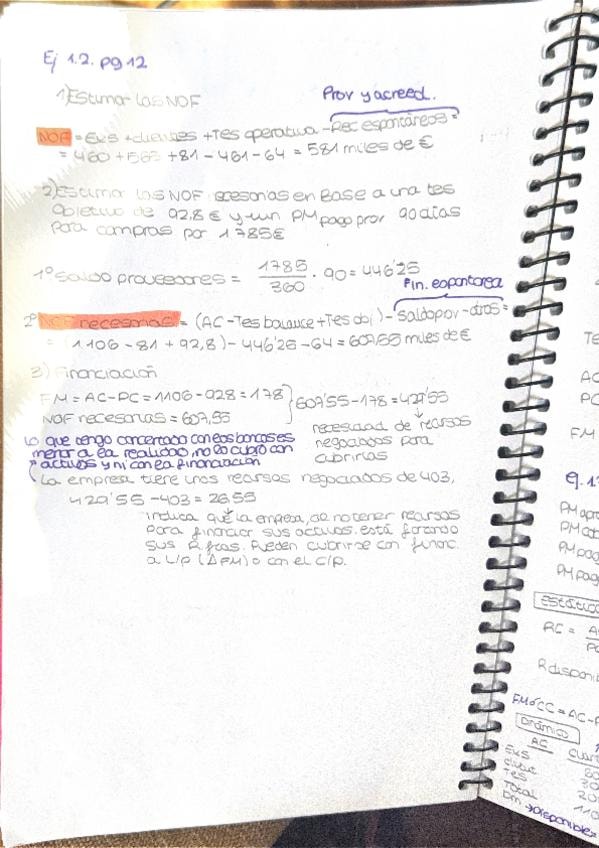 Ej 1.2. pg 12
1) Estimar las NOF
Prov y acreed.
NOF = Exs + clientes + Tes operativa - Rec espontáneos =
= 460 + 565 + 81 - 461 - 64 = 581 miles de €
2) Estimar las NOF necesarias en Base a una tes
Objetivo de 92,8 € y un PM pago prov 90 días
Para compras por 1785€
1º Saldo proveedores = 1785/360 · 90 = 446'25
Fin. espontanea
2º NOF necesarias = (AC - Tes balance + Tes obj) - Saldo prov - otros =
= (1106 - 81 + 92,8) - 446'25 - 64 = 607,55 miles de €
3) Financiación
FM = AC - PC = 1106 - 928 = 178
NOF necesarias = 607,55
} 607'55 - 178 = 429'55
necesidad de recursos
negociados para
cubrirlas
Lo que tengo concertado con los bancos es
menor a la realidad, no lo cubro con
activos y ni con la financiación
La empresa tiene unos recursos negociados de 403,
429'55 - 403 = 26'55
indica que la empresa, de no tener recursos
para financiar sus activos. está forzando
sus R. ftas. Pueden cubrirse con financ.
a L/P (ΔFM) o con el C/P.
AC
PC
FM
PM pago
PM pag
Estático
RC =
R disponi
FM ó CC = AC - P
Dinámico
AC
Exs
Client
Tes
Total
Dm → Disponible =